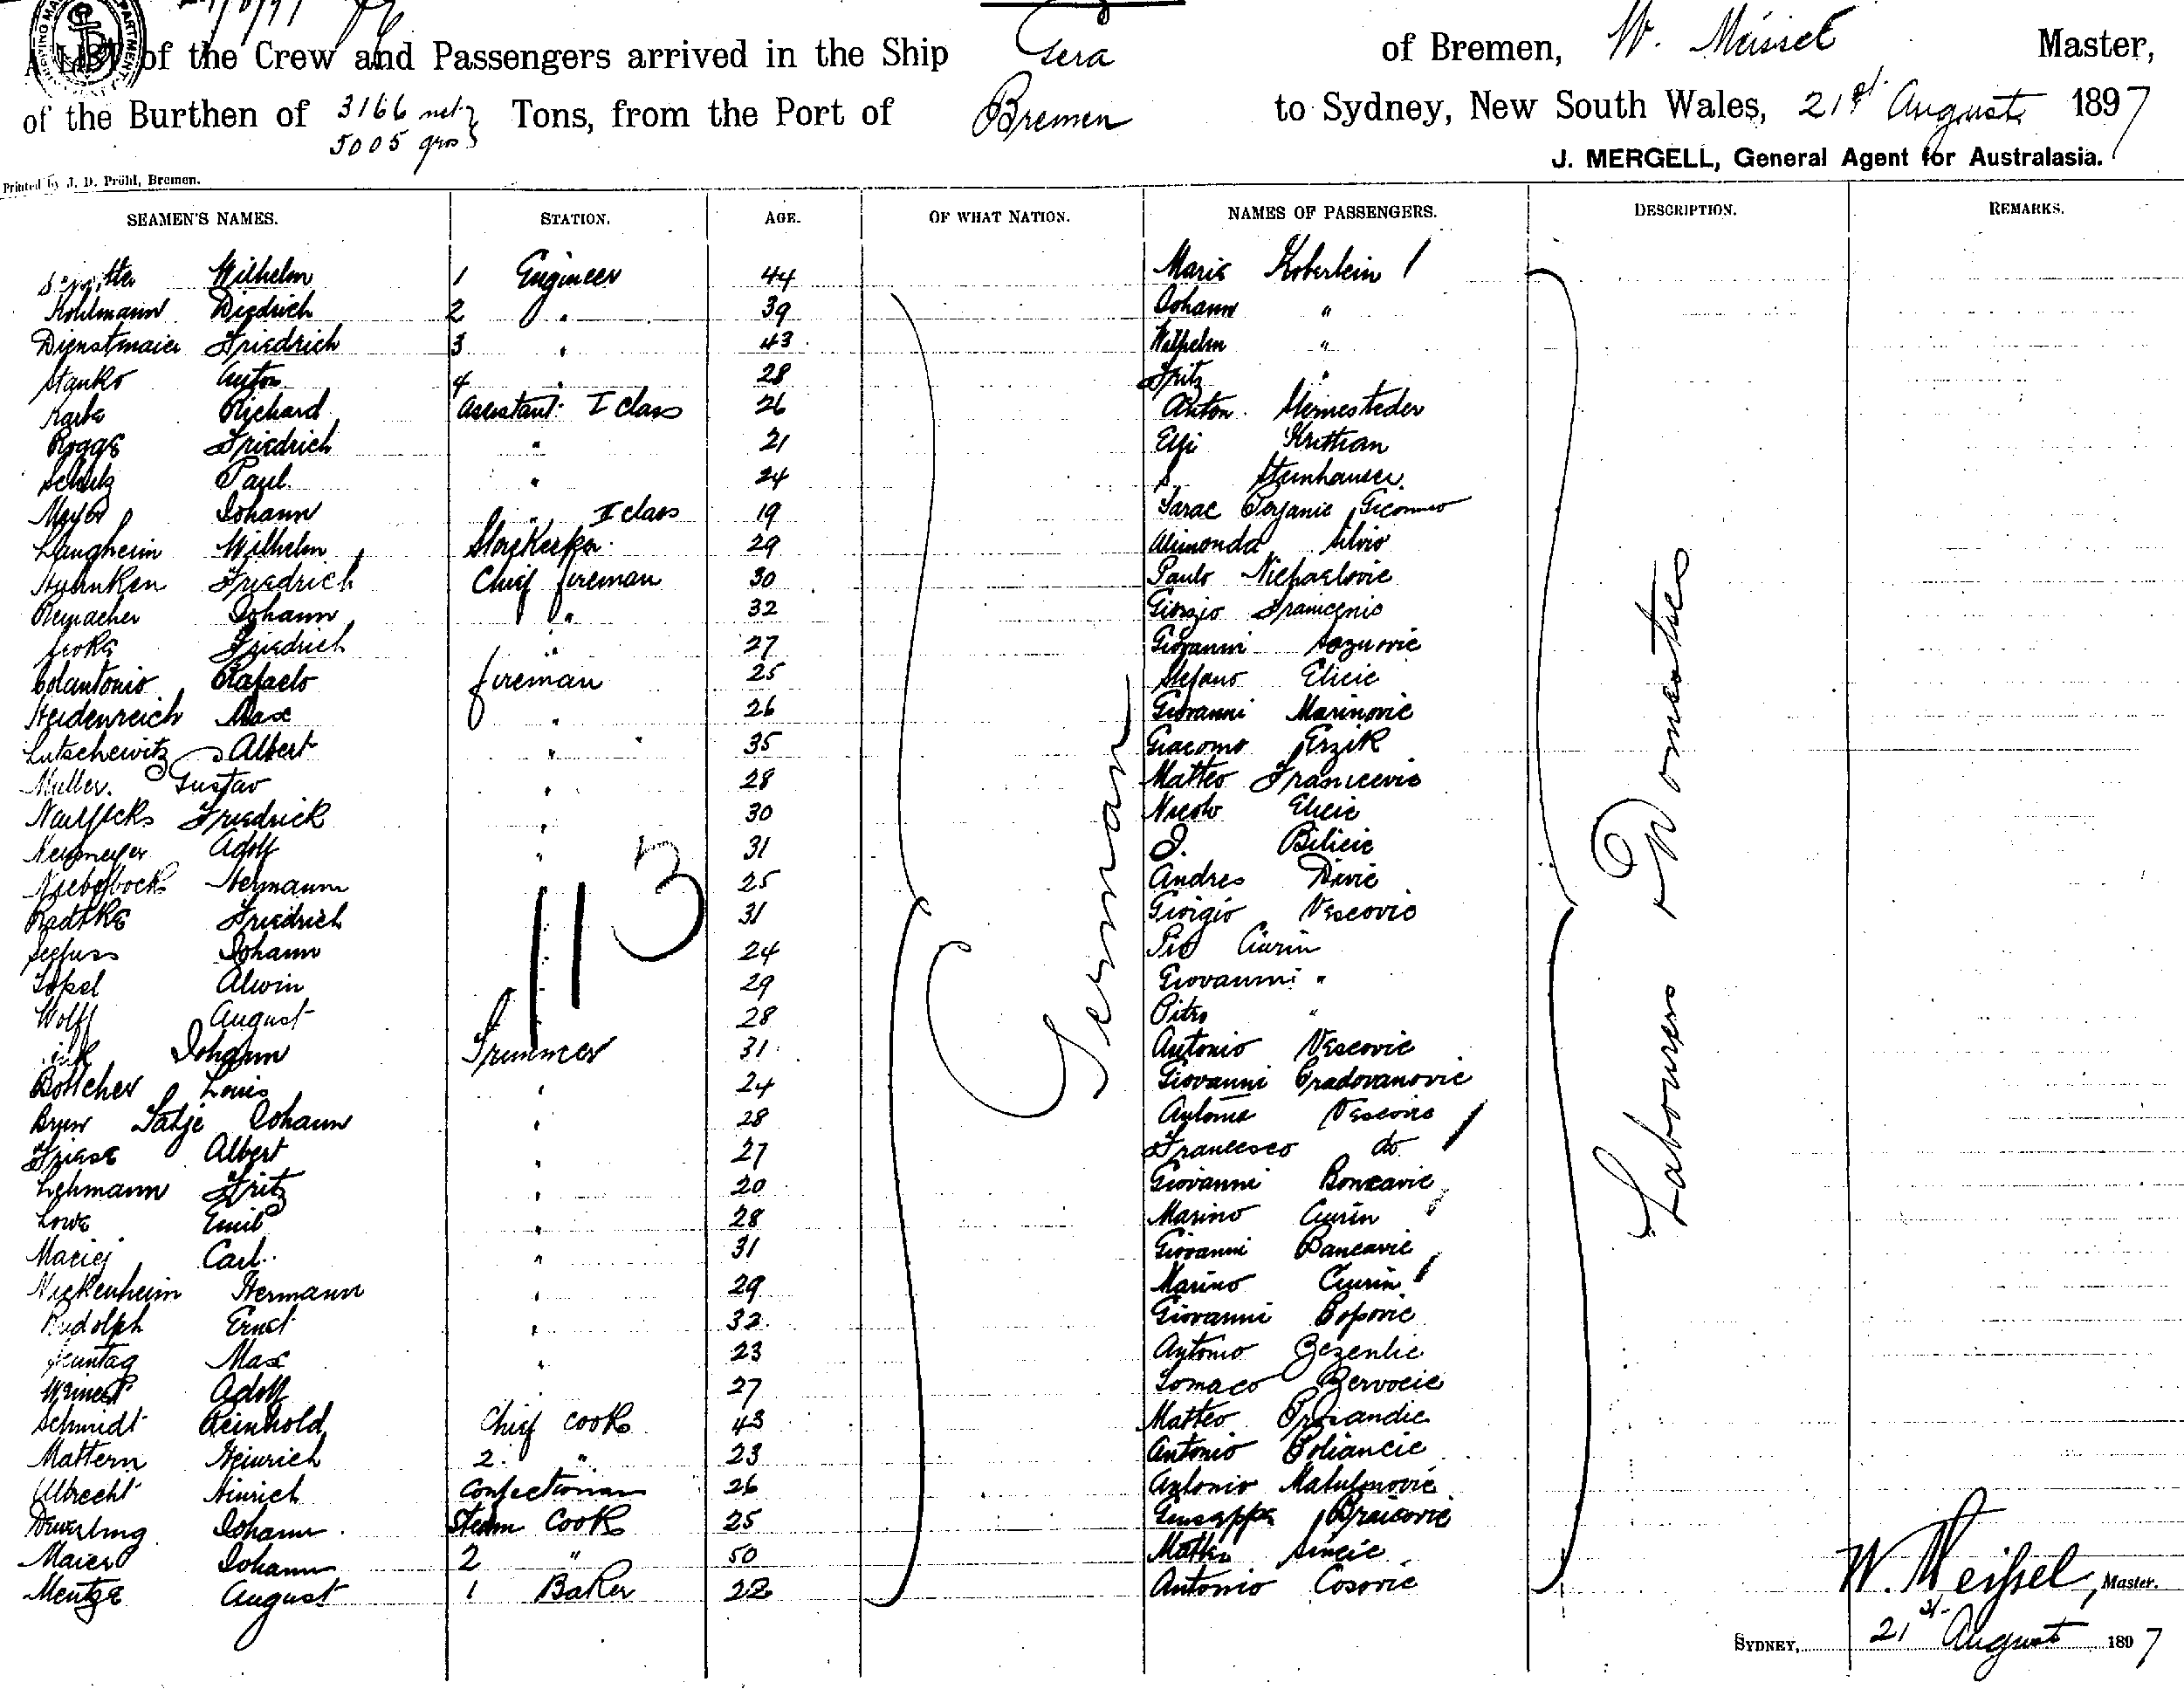 A LIST of the Crew and Passengers arrived in the Ship Gera of Bremen, W. Meissel Master,
of the Burthen of 3166 net Tons, from the Port of Bremen to Sydney, New South Wales, 21st August 1897
5005 gros
J. MERGELL, General Agent for Australasia.
Printed by J. D. Pröhl, Bremen.
SEAMEN'S NAMES. STATION. AGE. OF WHAT NATION. NAMES OF PASSENGERS. DESCRIPTION. REMARKS.
Wilhelm 1 Engineer 44 Marie Koberlein
Kohlmann Diedrich 2 " 39 Johann "
Dienstmaier Friedrich 3 " 43 Wilhelm "
Stanko Anton 4 " 28 Fritz "
Richard Assistant I class 26 Anton
Rogge Friedrich " 21 Kristian
Schulz Paul " 24 Steinhauser
Meyer Johann " II class 19
Langheim Wilhelm Storekeeper 29 Alimonda Silvio
Friedrich Chief fireman 30 Paulo Michaelovic
Remacher Johann " 32 Giorgio
Friedrich " 27 Giovanni
Colantonio Rafaelo fireman 25 Stefano Elicic
Heidenreich Max " 26 Giovanni Marinovic
Lutschewitz Albert " 35 Giacomo Grzik
Müller Gustav " 28 Matteo Franicevic
Friedrick " 30 Nicolo Elicic
Neumeyer Adolf " 31 J. Bilicic
Hermann " 25 Andres Divic
Radtke Friedrich 31 Giorgio Vescovic
Seefuss Johann 24 Pio Ciurin
Topel Alwin 29 Giovanni "
Wolff August 28 Pitro "
Johann Trimmer 31 Antonio Vescovic
Bottcher Louis " 24 Giovanni Gradovanovic
Johann " 28 Antonio Vescovic
Friese Albert " 27 Francesco do
Lehmann Fritz " 20 Giovanni Boncavic
Lowe Emil " 28 Marino Ciurin
Maciej Carl " 31 Giovanni Bancavic
Mackenheim Hermann " 29 Marino Ciurin
Rudolph Ernst " 32 Giovanni Popovic
Max " 23 Antonio Zezenlic
Weinert Adolf " 27 Tomaso
Schmidt Reinhold Chief cook 43 Matteo
Mattern Heinrich 2. " 23 Antonio
Albrecht Hinrich Confectioner 26 Antonio Matulinovic
Johann Steam Cook 25 Giuseppe
Maier Johann 2 " 50 Matteo
Mentze August 1 Baker 22 Antonio Cosovic
113
German
Labourers & Domestics
W. Meissel, Master.
SYDNEY, 21st August 1897